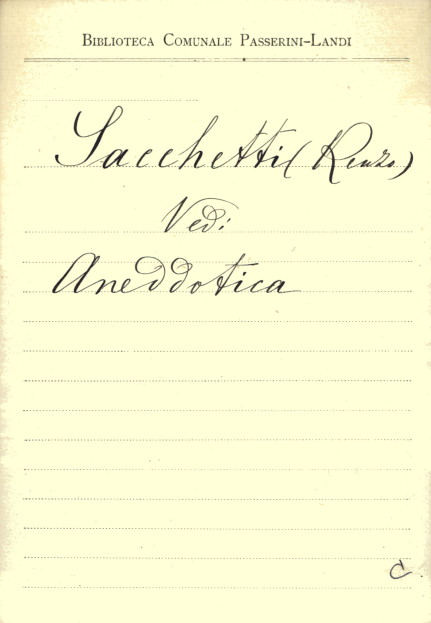 BIBLIOTECA COMUNALE PASSERINI-LANDI
Sacchetti (Renzo)
Vedi:
Aneddotica
C.